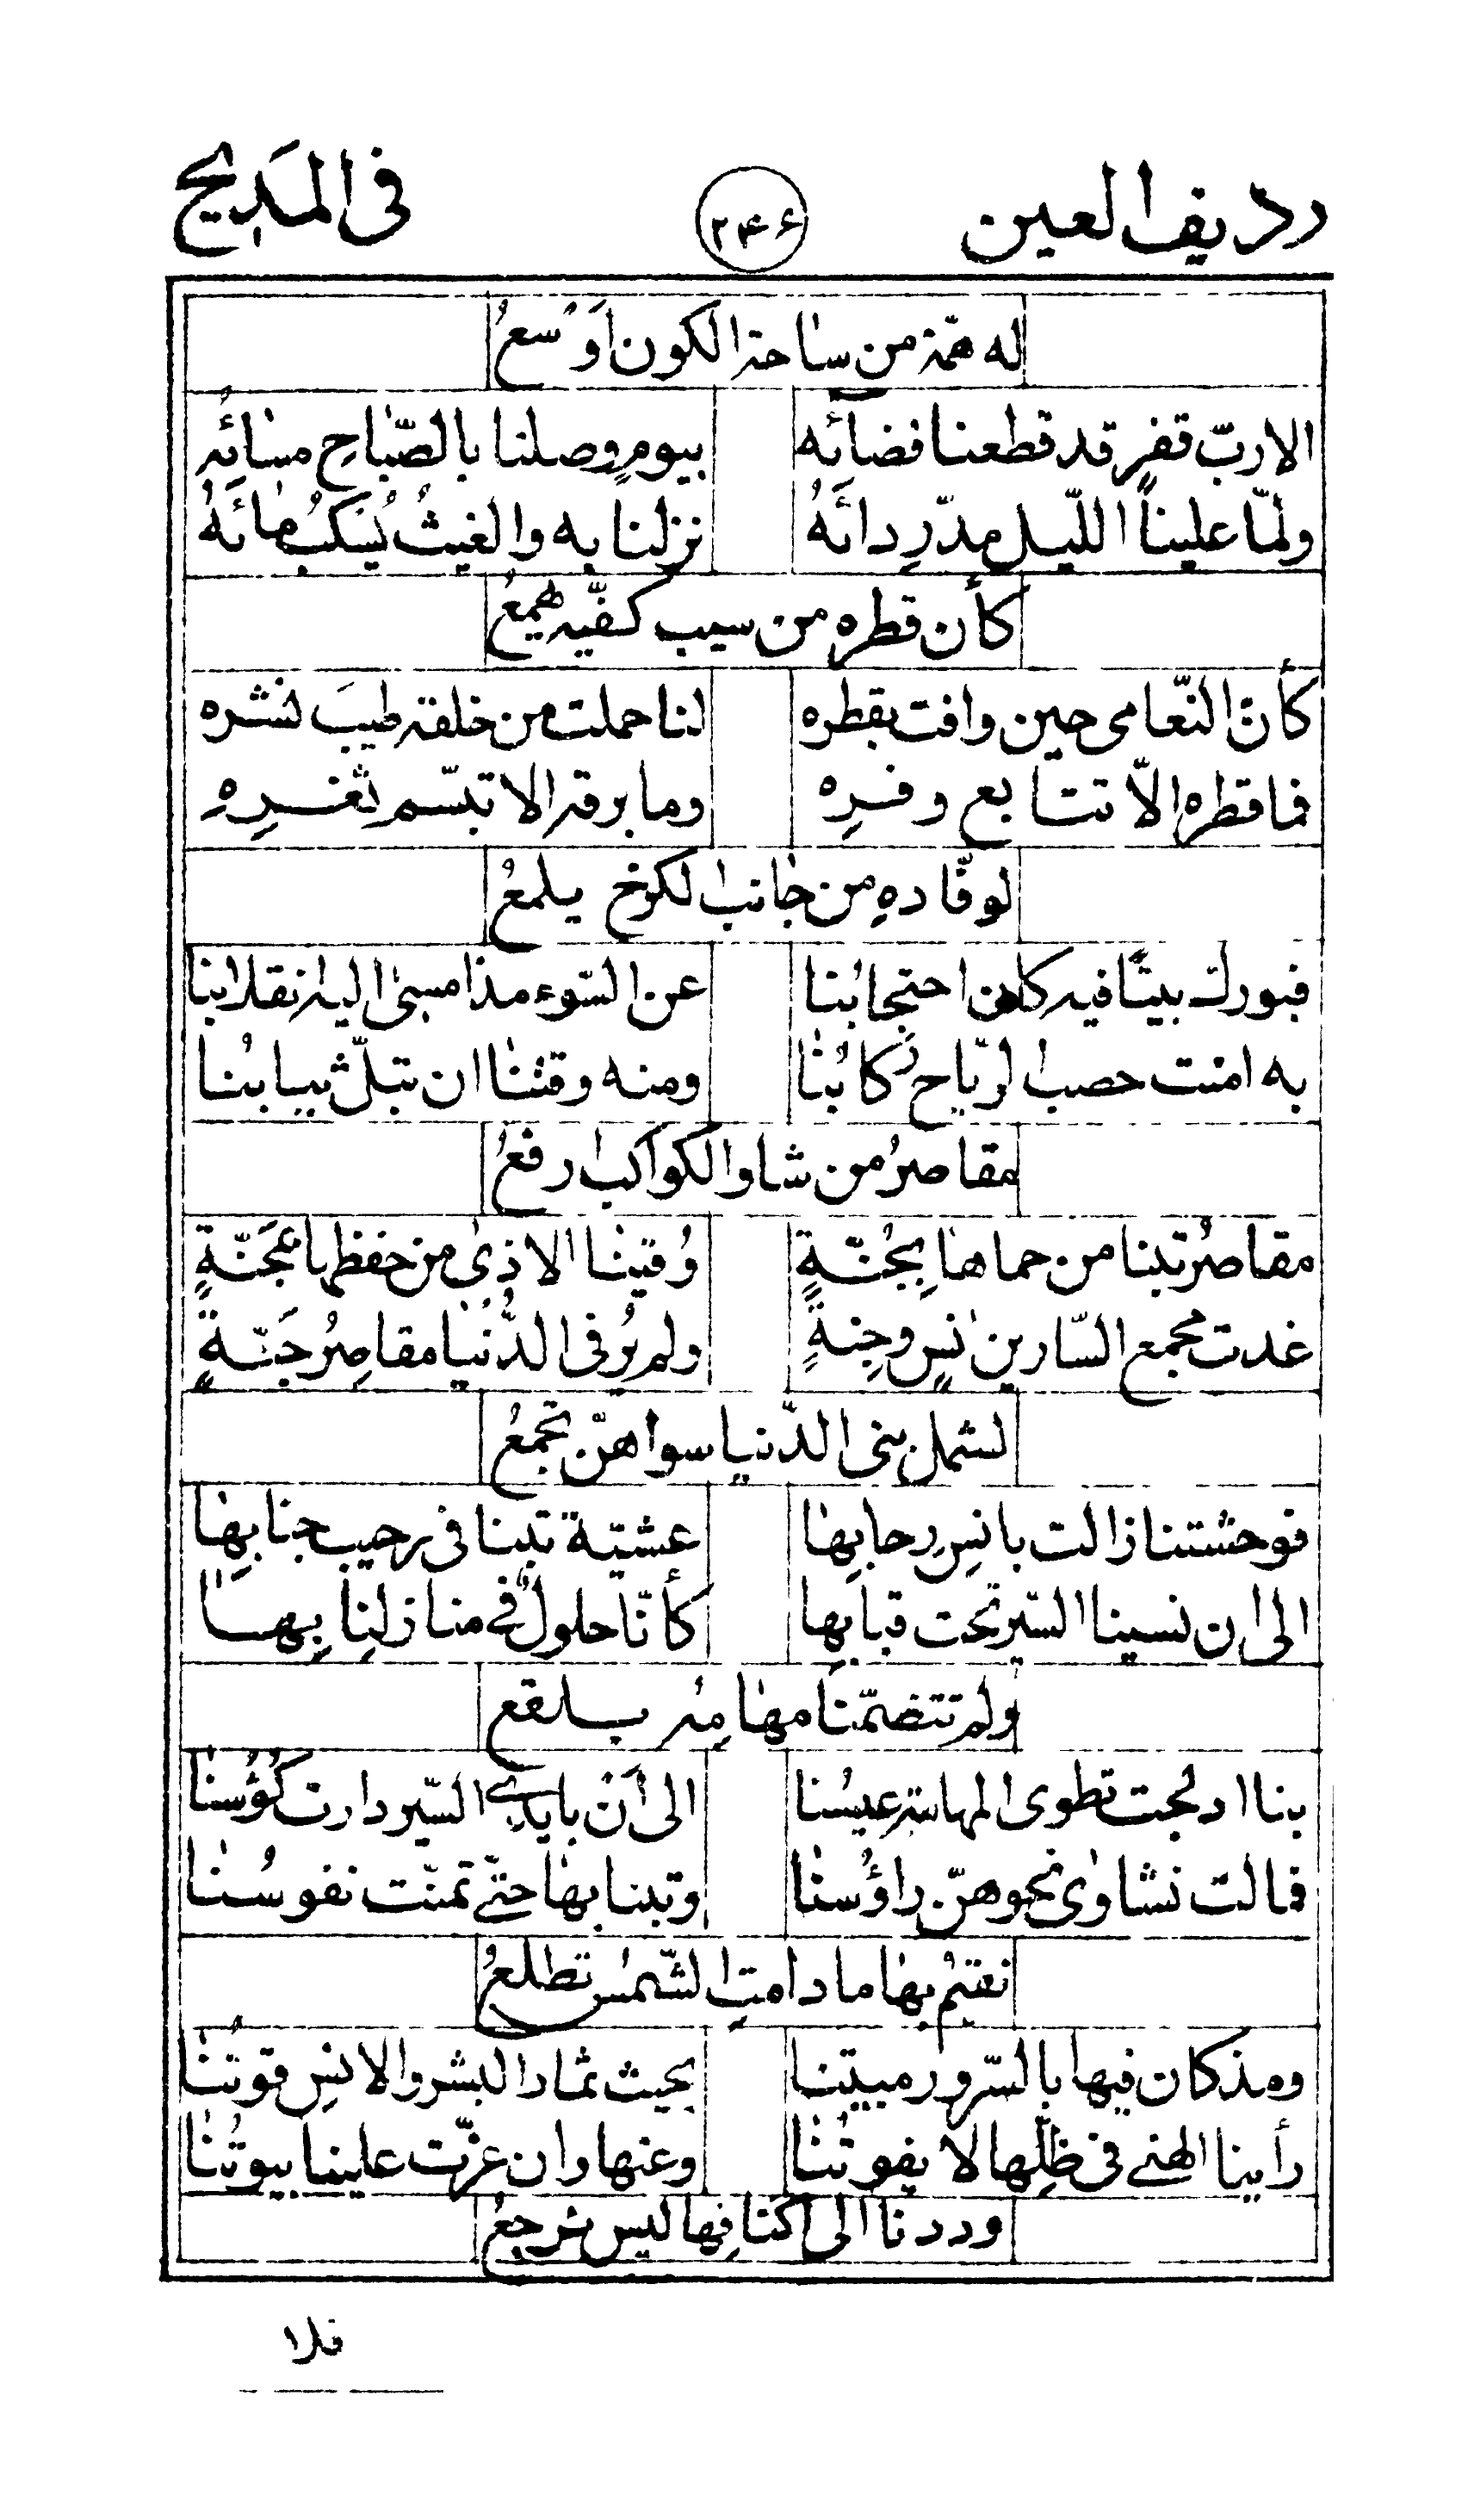 رديف العين ٢٤٦ فى المديح
له همّة من ساحة الكون اَوْسعُ
الا ربّ قفرٍ قد قطعنا فضائَه بيومٍ وصلنا بالصّباحِ مسائَه
ولمّا علينا اللّيل مدّ رِدائَهُ نزلنا به والغيثُ يُسكبُ مائَهُ
كأن قطره من سيب كفّيه يهمعُ
كأنّ النّعامى حين وافت بقطره لنا حملت من خلقه طيبَ نشره
فما قطره الاّ تتابع وفرِه وما برقه الا تبسّم ثغرِه
لوفّادهِ من جانب الكرخ يلمعُ
فبورك بيتًا فيه كان احتجابُنا عن السّوء مذ امسى اليه انقلابنا
به امنت حصب الرّياح رُكابُنا ومنه وقتنا ان تبلّ ثيابُنا
مقاصرُ من شاو الكواكب ارفعُ
مقاصرُ تبنا من حماها بِجُنّةٍ وُقينا الاذى من حفظها بمَجَنّةٍ
غدت مجمع السّارين انسٍ وجِنةٍ ولم يُرَ فى الدُّنيا مقاصِرُ جَنّةٍ
لشمل بنى الدّنيا سواهنّ تجمعُ
فوحشتنا زالت بانسِ رحابِها عشيّة تبنا فى رحيب جنابِها
الى ان نسينا السّير تحت قبابِها كأنّا حلولٌ في منازلِنا بِها
ولم تتضمّنا مهامِهُ بلقع
بنا ادلجت تطوى المهامِهَ عيسُنا الى اَنْ بايدي السّير دارت كُؤُسنا
فمالت نشاوى نحوهنّ راؤُسنا وتبنا بها حتّى تمنّت نفوسُنا
نقيمُ بها ما دامتِ الشّمسُ تطلعُ
ومذ كان فيها بالسّرور مبيتنا بحيث ثمار البشر والانسِ قوتُنا
رأينا الهني فى ظلِّها لا يفوتُنا وعنها وان عزّت علينا بيوتُنا
وددنا الى اكنافِها ليس نرجعُ
فلا